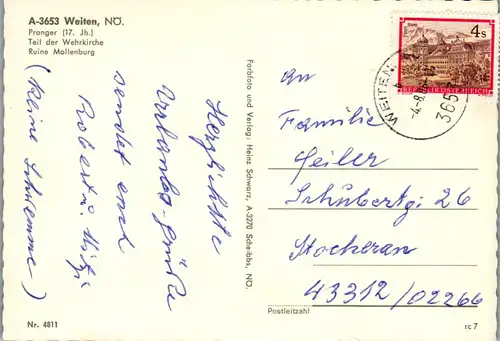 A-3653 Weiten, NÖ.
Pranger (17. Jh.)
Teil der Wehrkirche
Ruine Mollenburg
Herzlichste
Urlaubs-grüße
sendet euch
Robert u. Mitzi
(kleine Schwemme)
Nr. 4811
Farbfoto und Verlag: Heinz Schwarz, A-3270 Scheibbs, NÖ.
4 S
REPUBLIK ÖSTERREICH
WEITEN
3653
An
Familie
Geiler
Schubertg. 26
Stockerau
43312/02266
Postleitzahl
rc 7